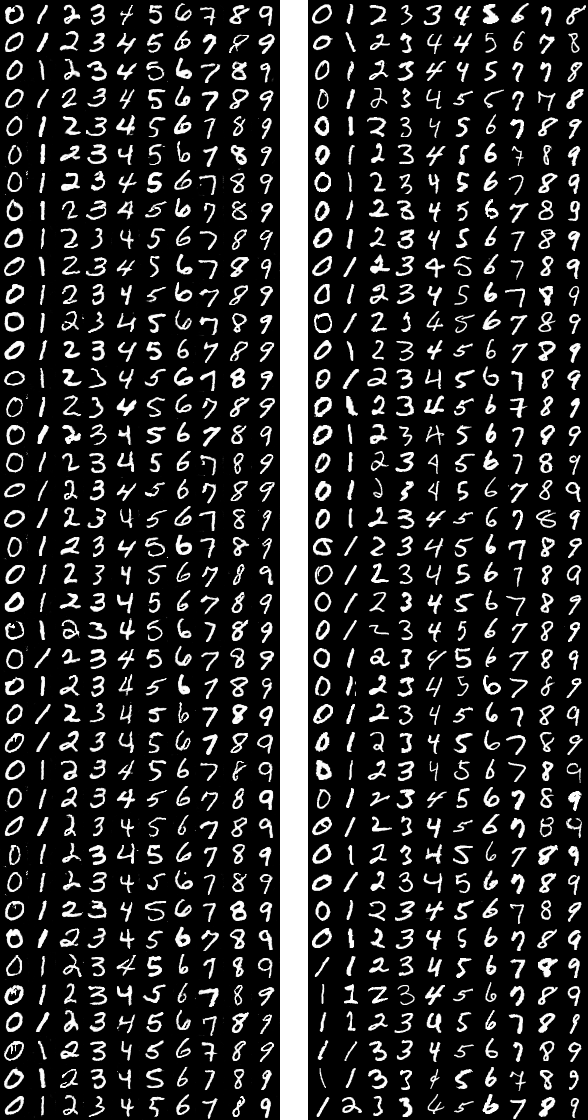 0 1 2 3 4 5 6 7 8 9 0 1 2 3 3 4 5 6 7 8
0 1 2 3 4 5 6 7 8 9 0 1 2 3 4 4 5 6 7 8
0 1 2 3 4 5 6 7 8 9 0 1 2 3 4 4 5 7 7 8
0 1 2 3 4 5 6 7 8 9 0 1 2 3 4 5 5 7 7 8
0 1 2 3 4 5 6 7 8 9 0 1 2 3 4 5 6 7 8 9
0 1 2 3 4 5 6 7 8 9 0 1 2 3 4 5 6 7 8 9
0 1 2 3 4 5 6 7 8 9 0 1 2 3 4 5 6 7 8 9
0 1 2 3 4 5 6 7 8 9 0 1 2 3 4 5 6 7 8 9
0 1 2 3 4 5 6 7 8 9 0 1 2 3 4 5 6 7 8 9
0 1 2 3 4 5 6 7 8 9 0 1 2 3 4 5 6 7 8 9
0 1 2 3 4 5 6 7 8 9 0 1 2 3 4 5 6 7 8 9
0 1 2 3 4 5 6 7 8 9 0 1 2 3 4 5 6 7 8 9
0 1 2 3 4 5 6 7 8 9 0 1 2 3 4 5 6 7 8 9
0 1 2 3 4 5 6 7 8 9 0 1 2 3 4 5 6 7 8 9
0 1 2 3 4 5 6 7 8 9 0 1 2 3 4 5 6 7 8 9
0 1 2 3 4 5 6 7 8 9 0 1 2 3 4 5 6 7 8 9
0 1 2 3 4 5 6 7 8 9 0 1 2 3 4 5 6 7 8 9
0 1 2 3 4 5 6 7 8 9 0 1 2 3 4 5 6 7 8 9
0 1 2 3 4 5 6 7 8 9 0 1 2 3 4 5 6 7 8 9
0 1 2 3 4 5 6 7 8 9 0 1 2 3 4 5 6 7 8 9
0 1 2 3 4 5 6 7 8 9 0 1 2 3 4 5 6 7 8 9
0 1 2 3 4 5 6 7 8 9 0 1 2 3 4 5 6 7 8 9
0 1 2 3 4 5 6 7 8 9 0 1 2 3 4 5 6 7 8 9
0 1 2 3 4 5 6 7 8 9 0 1 2 3 4 5 6 7 8 9
0 1 2 3 4 5 6 7 8 9 0 1 2 3 4 5 6 7 8 9
0 1 2 3 4 5 6 7 8 9 0 1 2 3 4 5 6 7 8 9
0 1 2 3 4 5 6 7 8 9 0 1 2 3 4 5 6 7 8 9
0 1 2 3 4 5 6 7 8 9 0 1 2 3 4 5 6 7 8 9
0 1 2 3 4 5 6 7 8 9 0 1 2 3 4 5 6 7 8 9
0 1 2 3 4 5 6 7 8 9 0 1 2 3 4 5 6 7 8 9
0 1 2 3 4 5 6 7 8 9 0 1 2 3 4 5 6 7 8 9
0 1 2 3 4 5 6 7 8 9 0 1 2 3 4 5 6 7 8 9
0 1 2 3 4 5 6 7 8 9 0 1 2 3 4 5 6 7 8 9
0 1 2 3 4 5 6 7 8 9 0 1 2 3 4 5 6 7 8 9
0 1 2 3 4 5 6 7 8 9 1 1 2 3 4 5 6 7 8 9
0 1 2 3 4 5 6 7 8 9 1 1 2 3 4 5 6 7 8 9
0 1 2 3 4 5 6 7 8 9 1 1 2 3 4 5 6 7 8 9
0 1 2 3 4 5 6 7 8 9 1 1 3 3 4 5 6 7 8 9
0 1 2 3 4 5 6 7 8 9 1 1 3 3 4 5 6 7 8 9
0 1 2 3 4 5 6 7 8 9 1 2 3 3 4 5 6 7 8 9